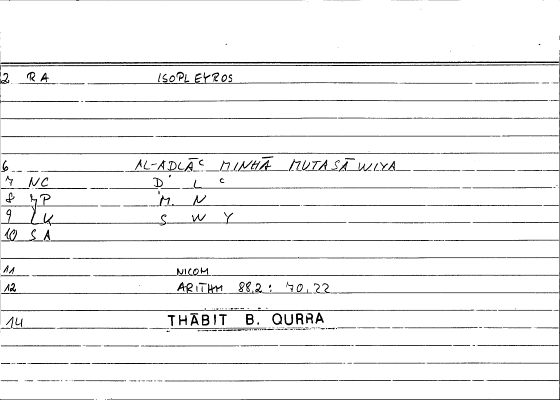 2 RA ISOPLEYROS
6 AL-ADLĀʿ MINHĀ MUTASĀWIYA
7 NC Ḍ L ʿ
8 7P M N
9 LK S W Y
10 SA
11 NICOM
12 ARITHM 88,2: 70,22
14 THĀBIT B. QURRA